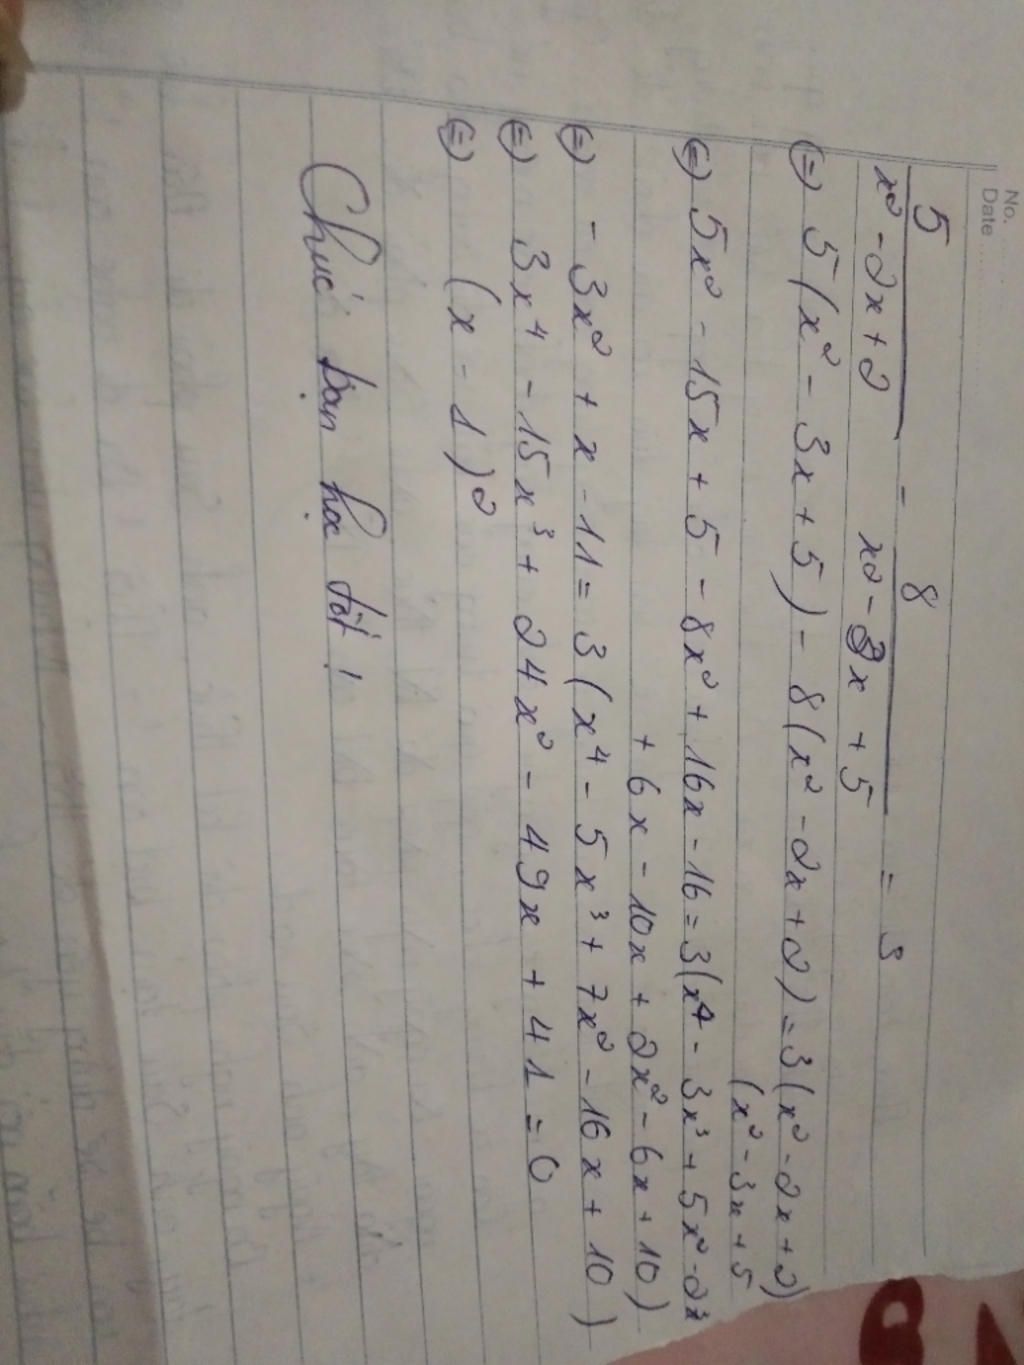 No.
Date
5/(x² - 2x + 2) - 8/(x² - 3x + 5) = 3
(=) 5(x² - 3x + 5) - 8(x² - 2x + 2) = 3(x² - 2x + 2)
(x² - 3x + 5
(=) 5x² - 15x + 5 - 8x² + 16x - 16 = 3(x⁴ - 3x³ + 5x² - 2x³
+ 6x - 10x + 2x² - 6x + 10)
(=) - 3x² + x - 11 = 3(x⁴ - 5x³ + 7x² - 16x + 10)
(=) 3x⁴ - 15x³ + 24x² - 49x + 41 = 0
(=) (x - 1)²
Chúc bạn học tốt !